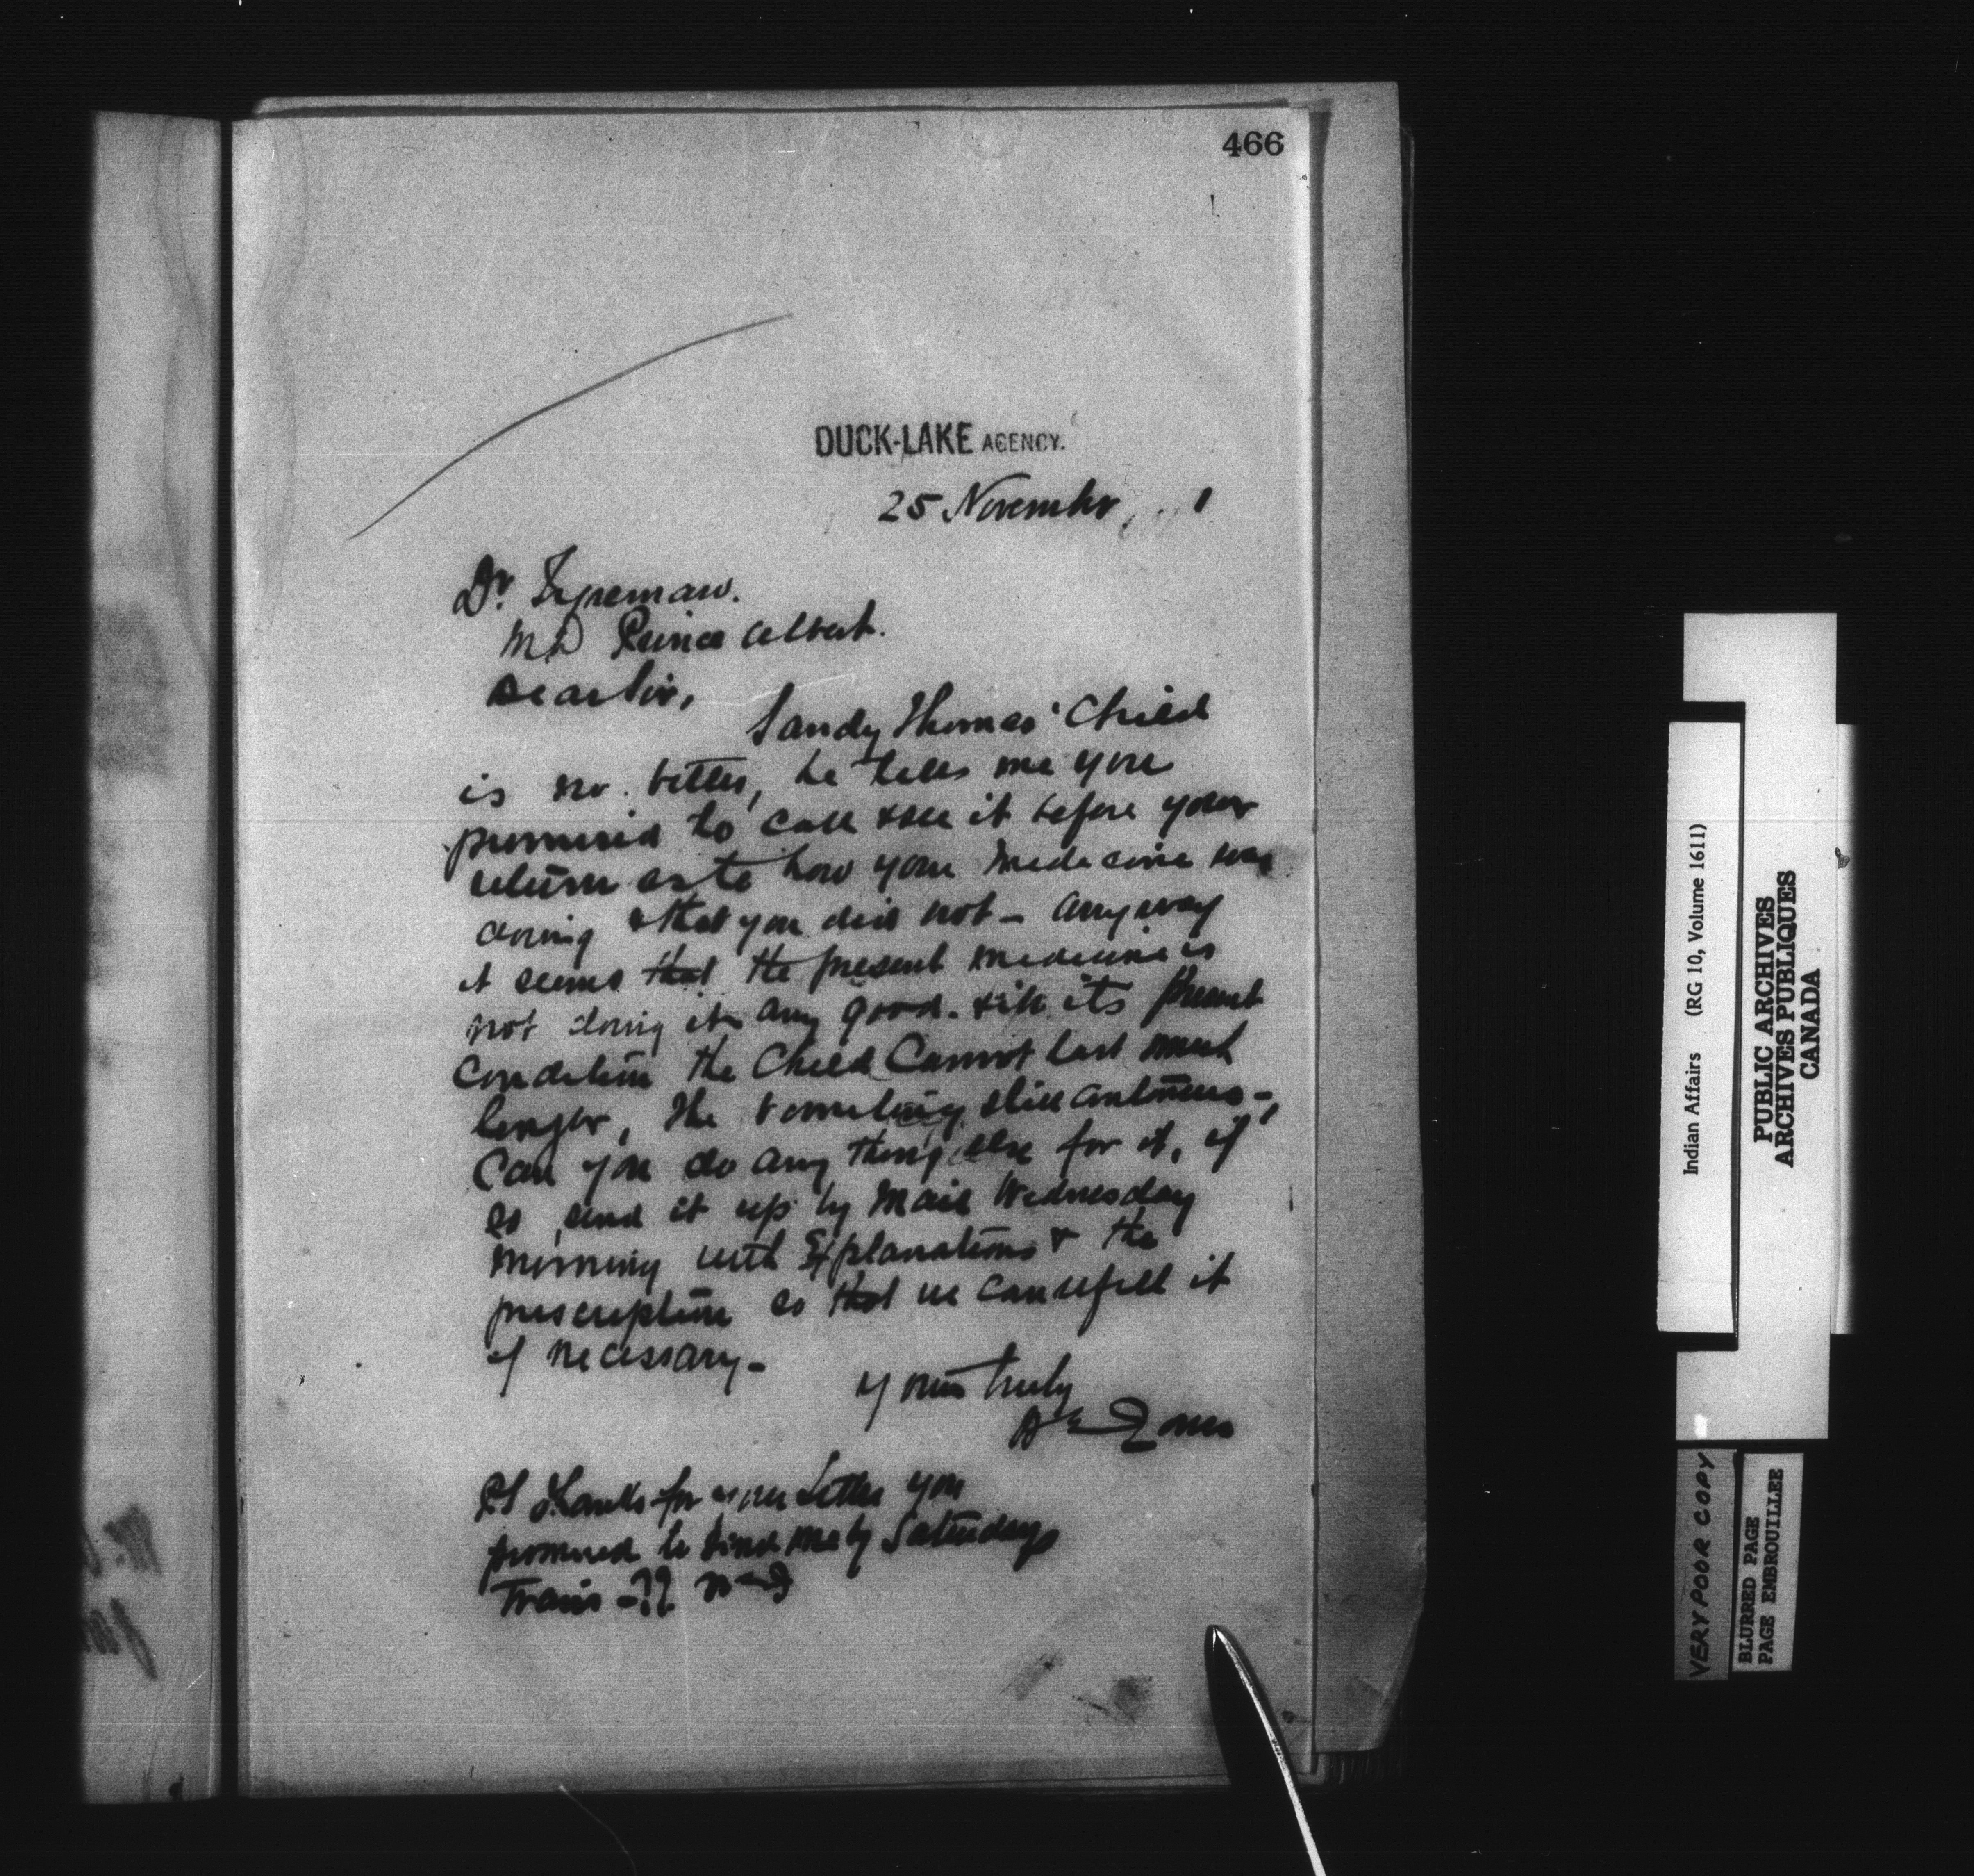 466
DUCK-LAKE AGENCY.
25 November, 1
Dr. Tyreman.
MD Prince Albert.
Dear Sir,
Sandy Thomas' Child
is no better, he tells me you
promised to call & see it before your
return as to how your medicine was
doing & that you did not - anyway
it seems that the present medicine is
not doing it any good. & in its present
Condition the Child Cannot last much
longer, the vomiting still continues -,
Can you do any thing else for it, if
so send it up by Mail Wednesday
morning with Explanations & the
prescription so that we can refill it
if necessary -
Yours truly
Jones
PS Thanks for your Letter you
promised to send me by Saturdays
Train - ??
Indian Affairs (RG 10, Volume 1611)
PUBLIC ARCHIVES
ARCHIVES PUBLIQUES
CANADA
VERY POOR COPY
BLURRED PAGE
PAGE EMBROUILLEE